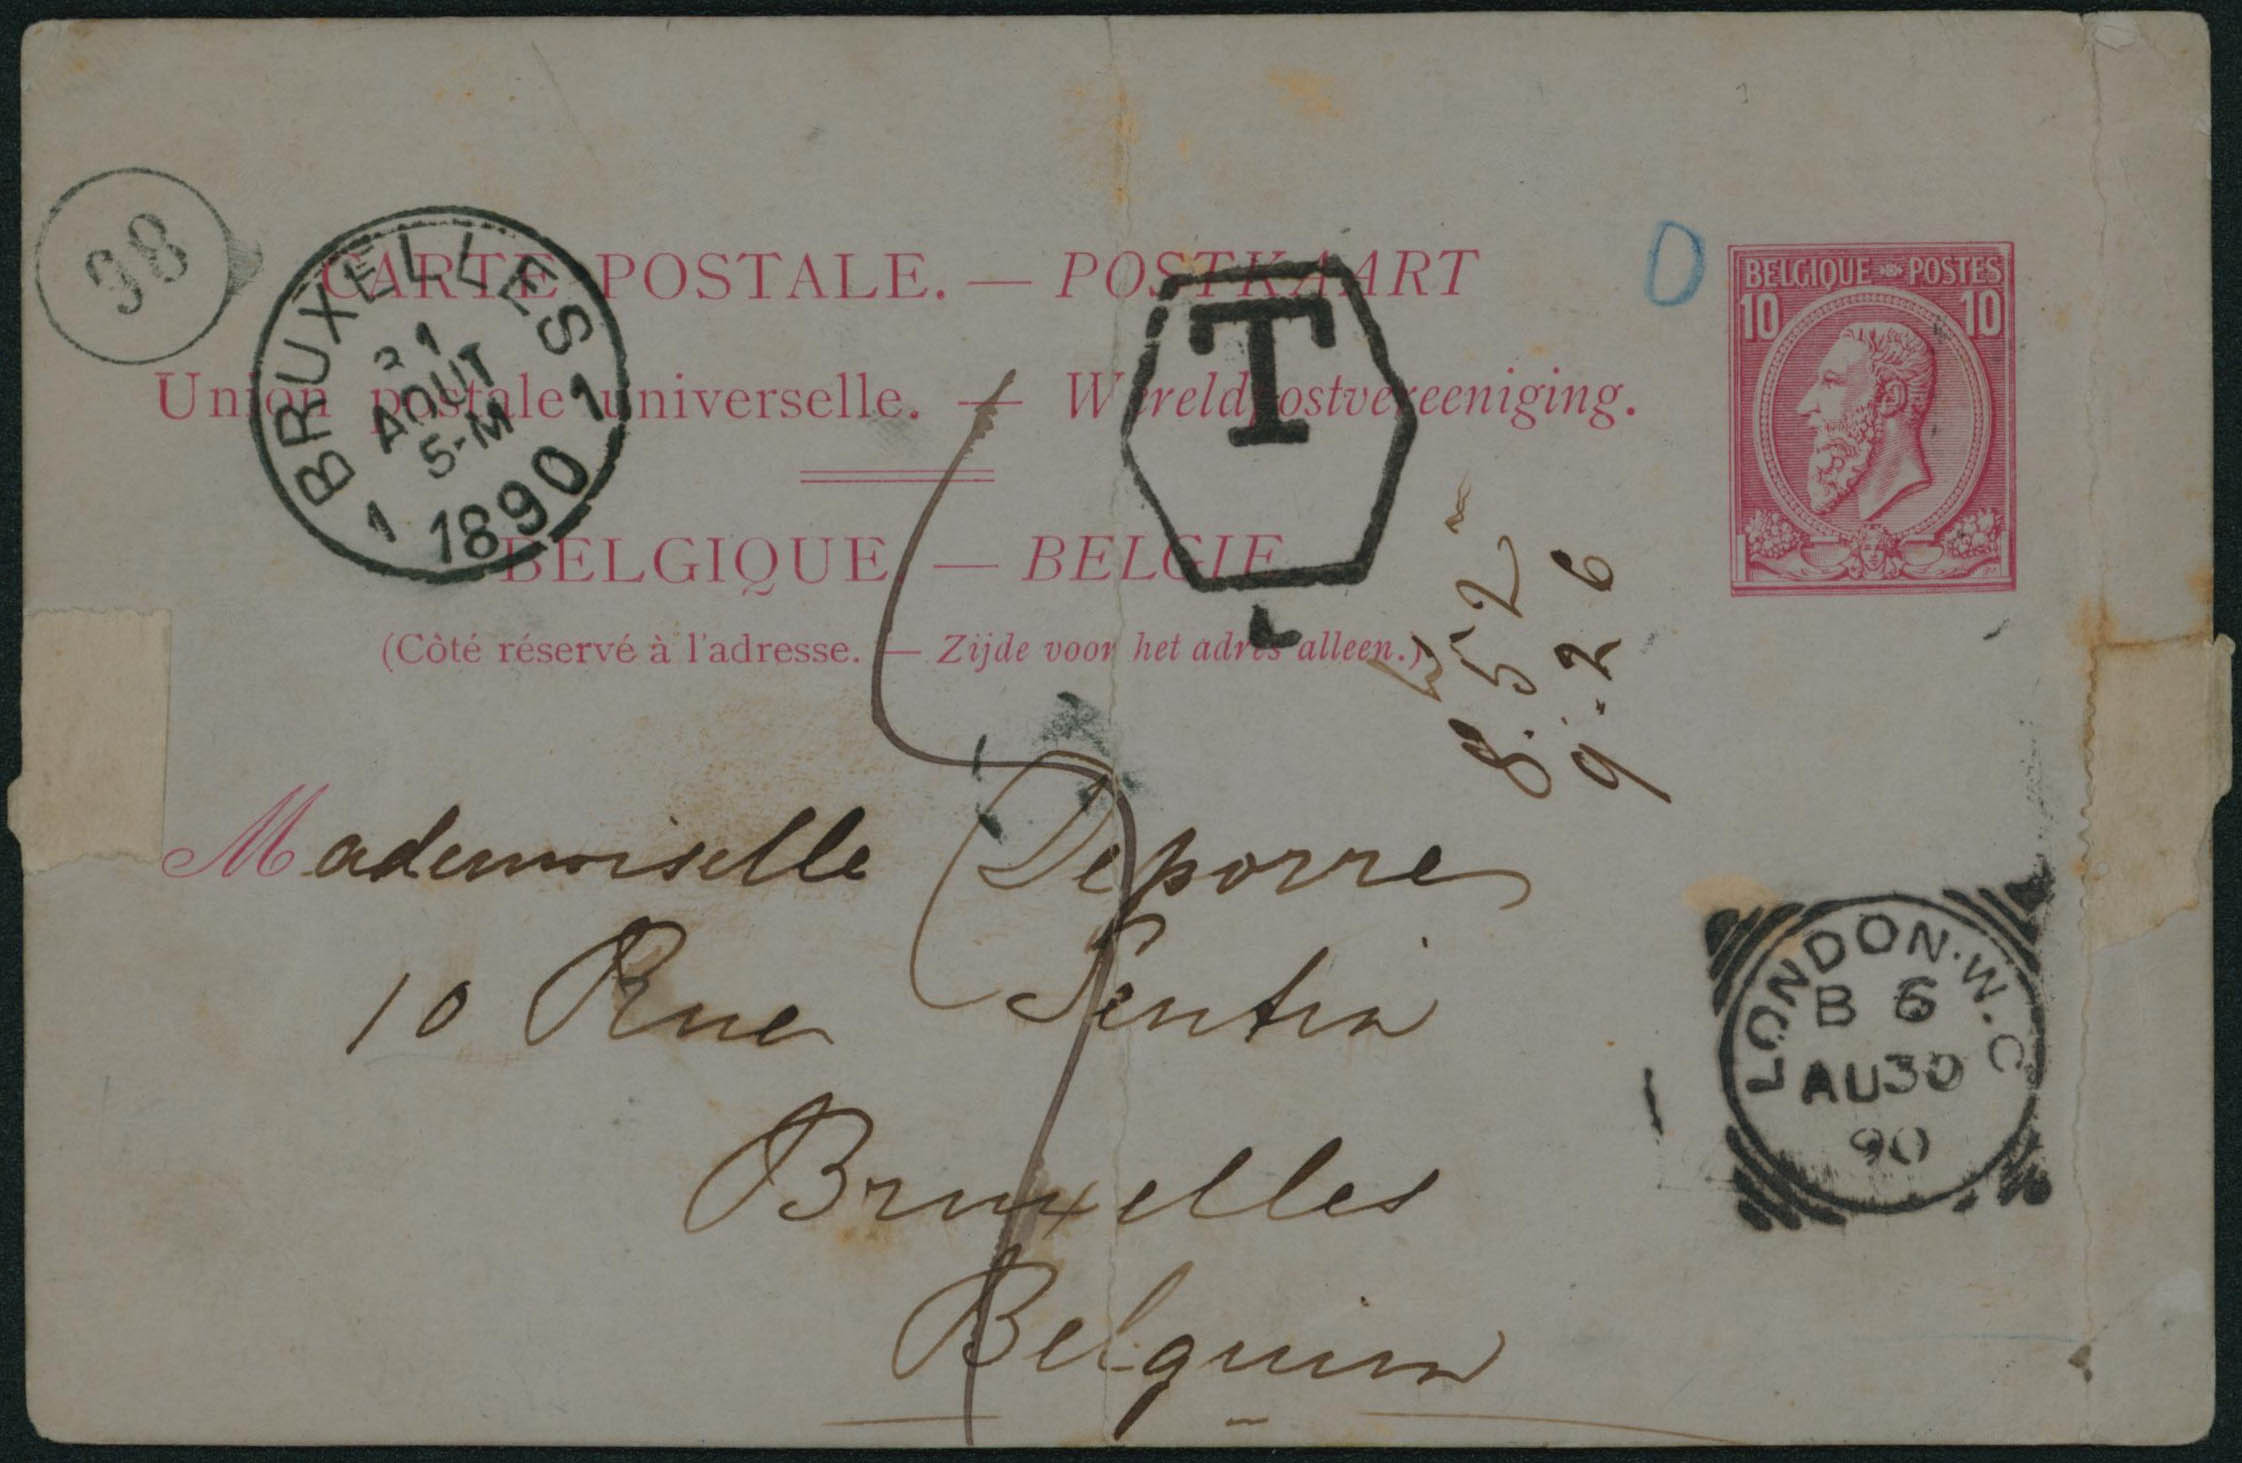 CARTE POSTALE. — POSTKAART
Union postale universelle. — Wereldpostvereeniging.
BELGIQUE. — BELGIE
(Côté réservé à l'adresse. — Zijde voor het adres alleen.)
BELGIQUE POSTES
10 10
98
BRUXELLES
31
AOUT
5-M
1 1890 1
T
D
8.52
9.26
Mademoiselle Deporre
10 Rue Sentin
Bruxelles
Belgium
LONDON.W.C
B 6
AU30
90